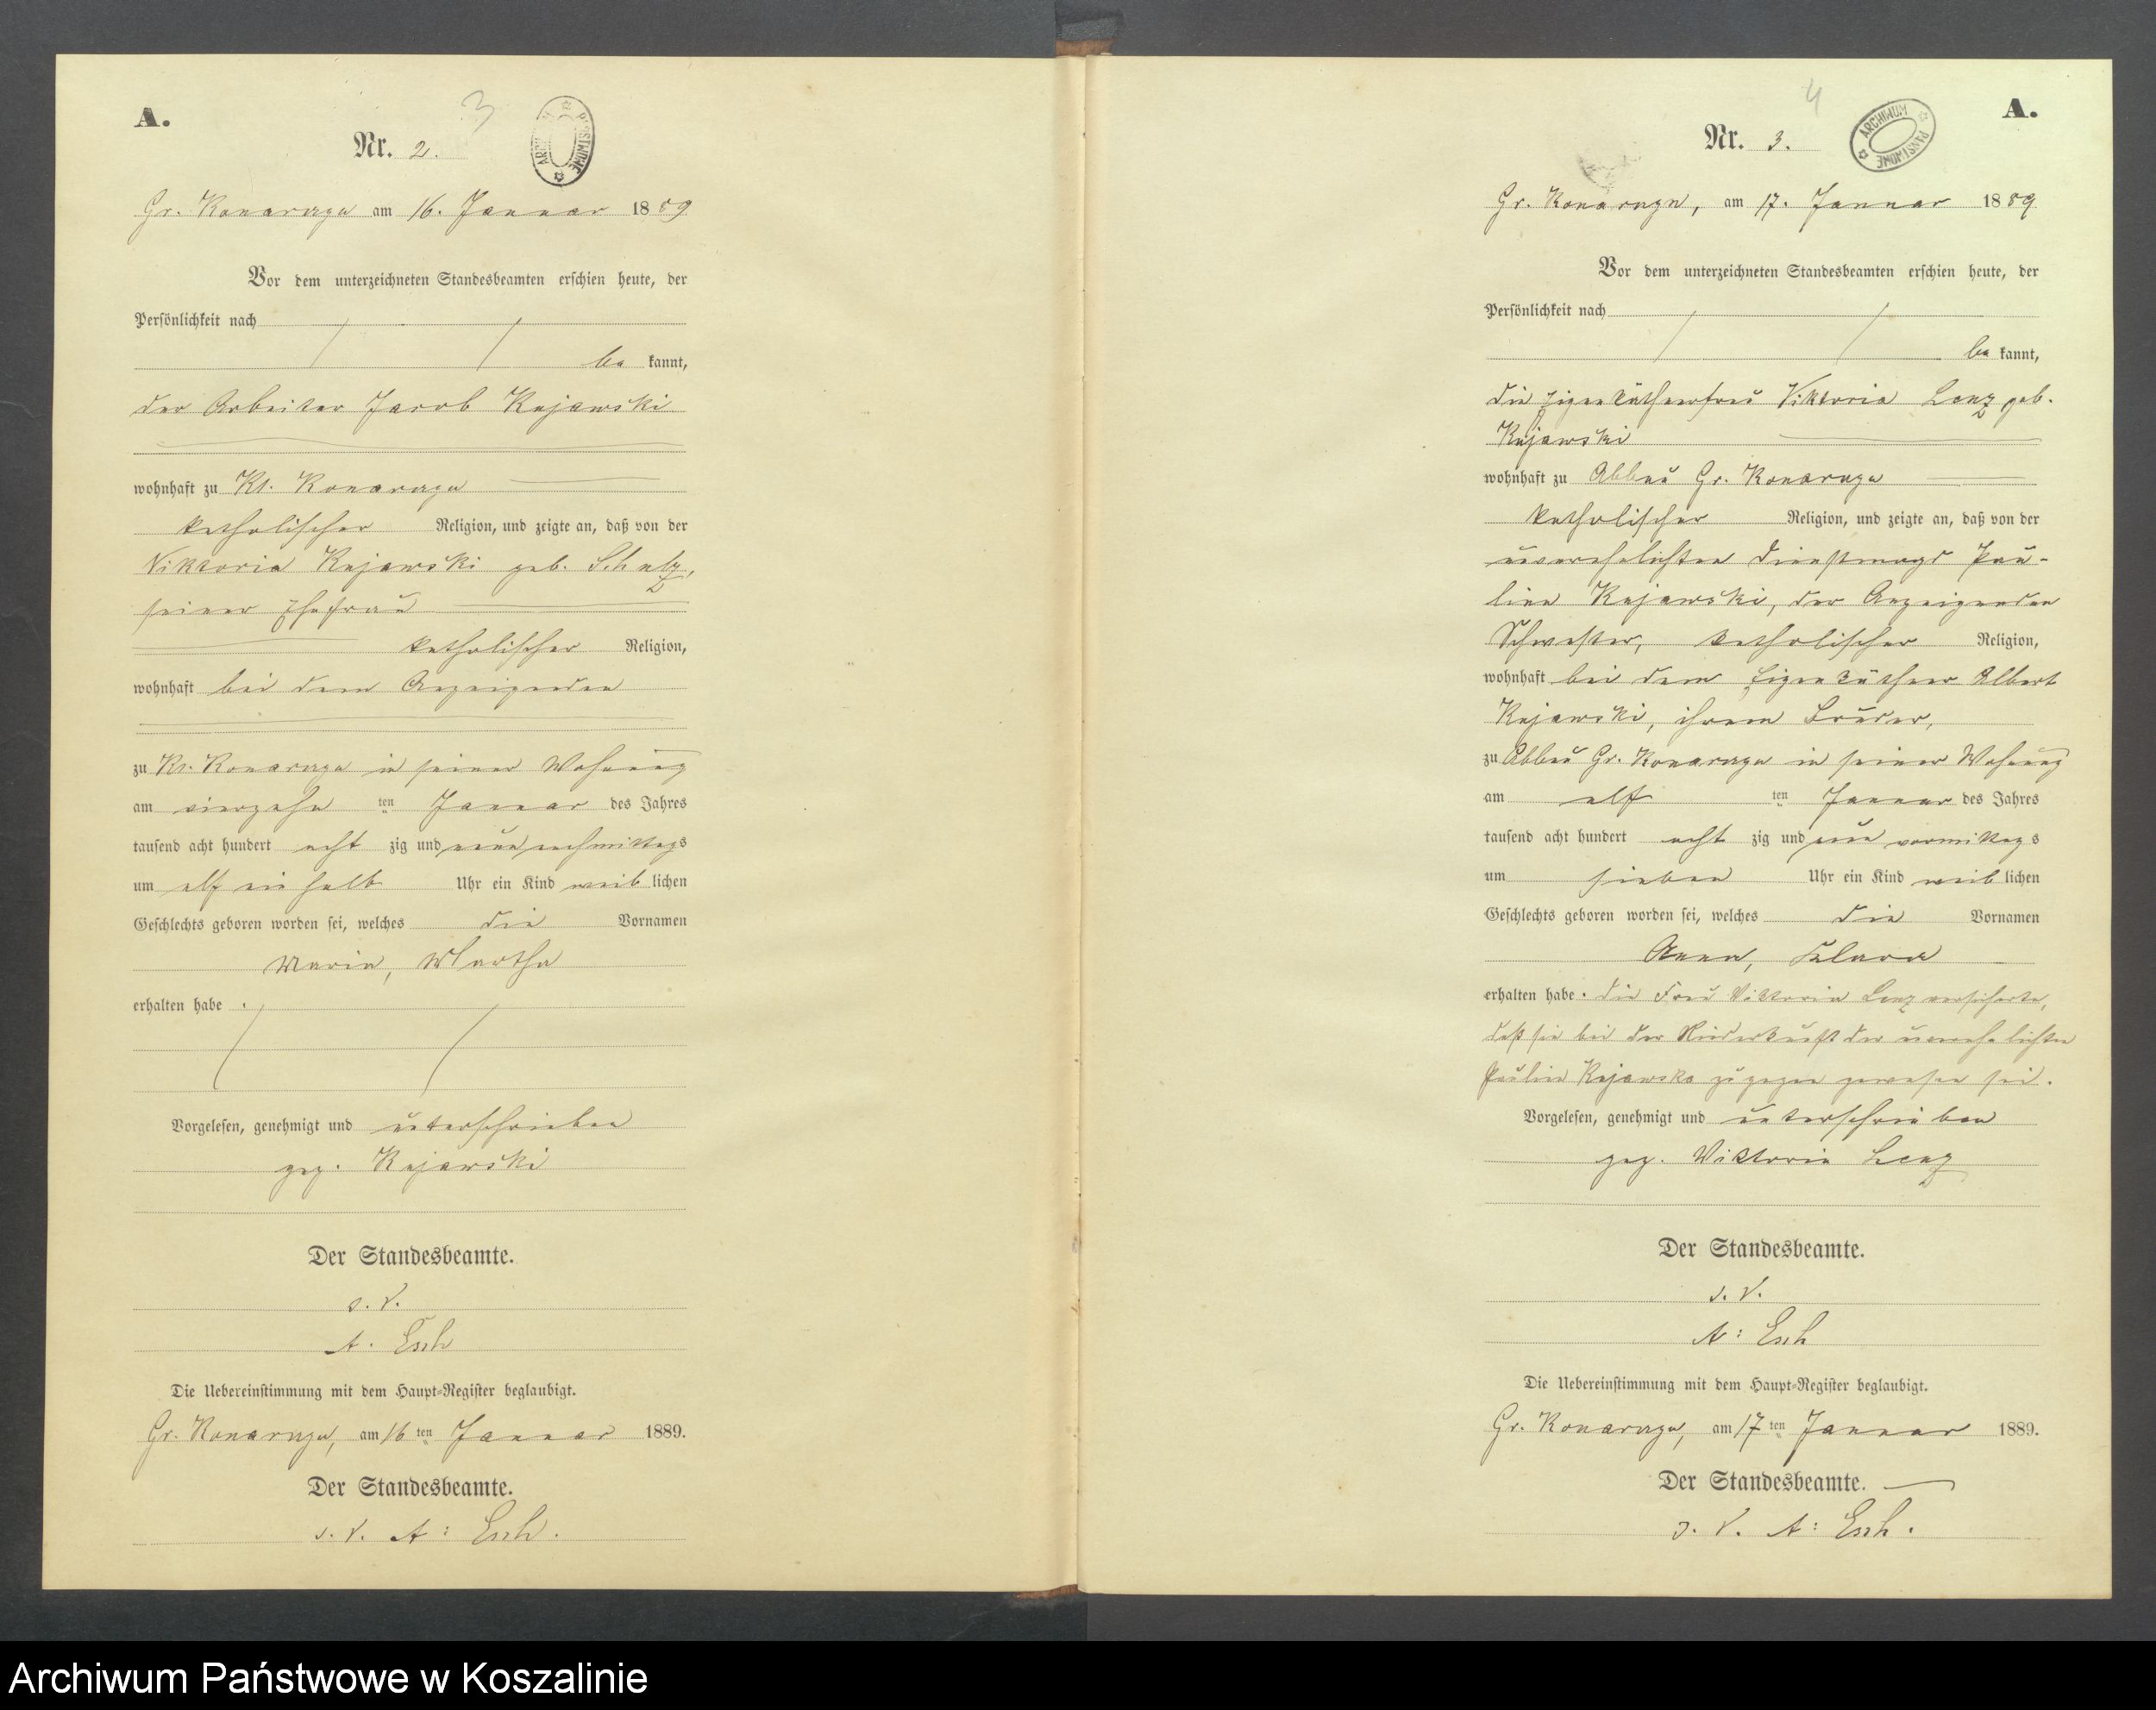 A.
3
Nr. 2.
ARCHIWUM PAŃSTWOWE
Gr. Konarczyn am 16. Januar 1889
Vor dem unterzeichneten Standesbeamten erschien heute, der
Persönlichkeit nach
be kannt,
der Arbeiter Jacob Kujawski
wohnhaft zu Kl. Konarczyn
katholischer Religion, und zeigte an, daß von der
Viktoria Kujawski geb. Schulz,
seiner Ehefrau
katholischer Religion,
wohnhaft bei dem Anzeigenden
zu Kl. Konarczyn in seiner Wohnung
am vierzehn ten Januar des Jahres
tausend acht hundert acht zig und neun nachmittags
um elf ein halb Uhr ein Kind weib lichen
Geschlechts geboren worden sei, welches die Vornamen
Maria, Martha
erhalten habe.
Vorgelesen, genehmigt und unterschrieben
gez. Kujawski
Der Standesbeamte.
A. Esch
Die Uebereinstimmung mit dem Haupt-Register beglaubigt.
Gr. Konarczyn, am 16 ten Januar 1889.
Der Standesbeamte.
A: Esch.
4
A.
Nr. 3.
ARCHIWUM PAŃSTWOWE
Gr. Konarczyn, am 17. Januar 1889
Vor dem unterzeichneten Standesbeamten erschien heute, der
Persönlichkeit nach
be kannt,
die Eigenkäthnerfrau Viktoria Lenz geb.
Kujawski
wohnhaft zu Abbau Gr. Konarczyn
katholischer Religion, und zeigte an, daß von der
unverehelichten Dienstmagd Pau-
line Kujawski, der Anzeigenden
Schwester, katholischer Religion,
wohnhaft bei dem Eigenkäthner Albert
Kujawski, ihrem Bruder,
zu Abbau Gr. Konarczyn in seiner Wohnung
am elf ten Januar des Jahres
tausend acht hundert acht zig und neun vormittags
um sieben Uhr ein Kind weib lichen
Geschlechts geboren worden sei, welches die Vornamen
Anna, Klara
erhalten habe. Die Frau Viktoria Lenz versicherte,
daß sie bei der Niederkunft der unverehelichten
Pauline Kujawska zugegen gewesen sei.
Vorgelesen, genehmigt und unterschrieben
gez. Viktoria Lenz
Der Standesbeamte.
A: Esch
Die Uebereinstimmung mit dem Haupt-Register beglaubigt.
Gr. Konarczyn, am 17 ten Januar 1889.
Der Standesbeamte.
A: Esch.
Archiwum Państwowe w Koszalinie